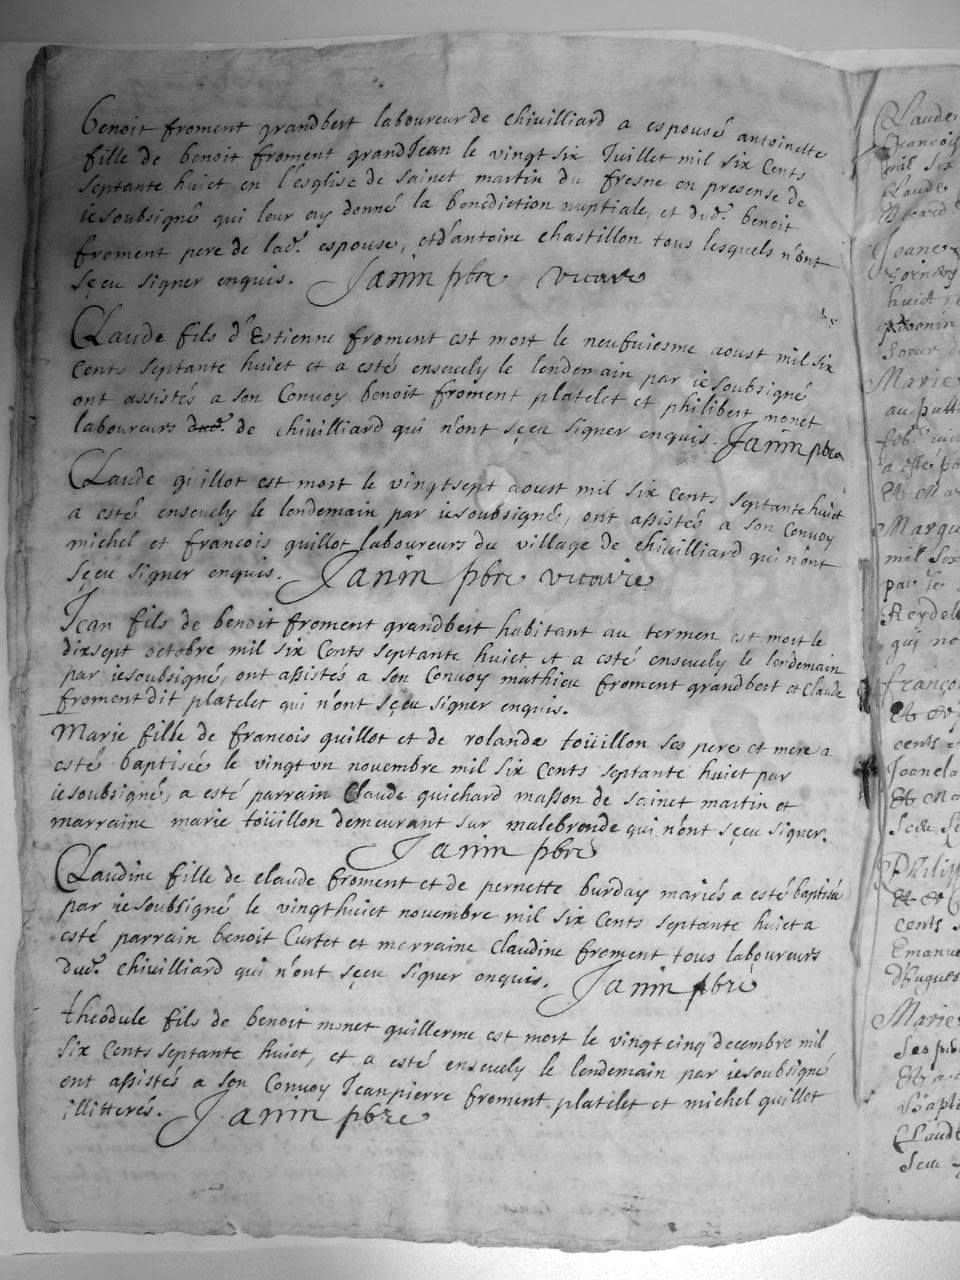 Benoit froment grandbert laboureur de chivilliard a espousé antoinette
fille de benoit froment grandJean le vingt six Juillet mil six Cents
septante huict en l'esglise de sainct martin du fresne en presense de
iesoubsigné qui leur ay donné la benediction nuptiale, et dud.t benoit
froment pere de lad.e espouse, et d'antoine chastillon tous lesquels n'ont
sçeu signer enquis. Janin pbre vicaire
Claude fils d'Estienne froment est mort le neufuiesme aoust mil six
Cents septante huict et a esté enseuely le lendemain par iesoubsigné
ont assistés a son Convoy benoit froment platelet et philibert monet
laboureurs dud.t de chivilliard qui n'ont sçeu signer enquis. Janin pbre
Claude guillot est mort le vingtsept aoust mil six Cents septante huict
a esté enseuely le lendemain par iesoubsigné, ont assistés a son Convoy
michel et francois guillot laboureurs du village de chivilliard qui n'ont
sçeu signer enquis. Janin pbre vicaire
Jean fils de benoit froment grandbert habitant au termen est mort le
dixsept octobre mil six Cents septante huict et a esté enseuely le lendemain
par iesoubsigné, ont assistés a son Convoy mathieu froment grandbert et Claude
froment dit platelet qui n'ont sçeu signer enquis.
Marie fille de francois guillot et de rolande toüillon ses pere et mere a
esté baptisée le vingt vn novembre mil six Cents septante huict par
iesoubsigné, a esté parrain Claude guichard masson de sainct martin et
marraine marie toüillon demeurant sur malebronde qui n'ont sçeu signer.
Janin pbre
Claudine fille de claude froment et de pernette burday mariés a esté baptisée
par iesoubsigné le vingthuict novembre mil six Cents septante huict a
esté parrain benoit Curtet et merraine claudine froment tous laboureurs
dud.t chivilliard qui n'ont sçeu signer enquis. Janin pbre
théodule fils de benoit monet guillerme est mort le vingtcinq decembre mil
six Cents septante huict, et a esté enseuely le lendemain par iesoubsigné
ont assistés a son Convoy Jeanpierre froment platelet et michel guillot
illitterés. Janin pbre
Claude
francois
mil six
Claude
Joane
huict
Marie
Marie